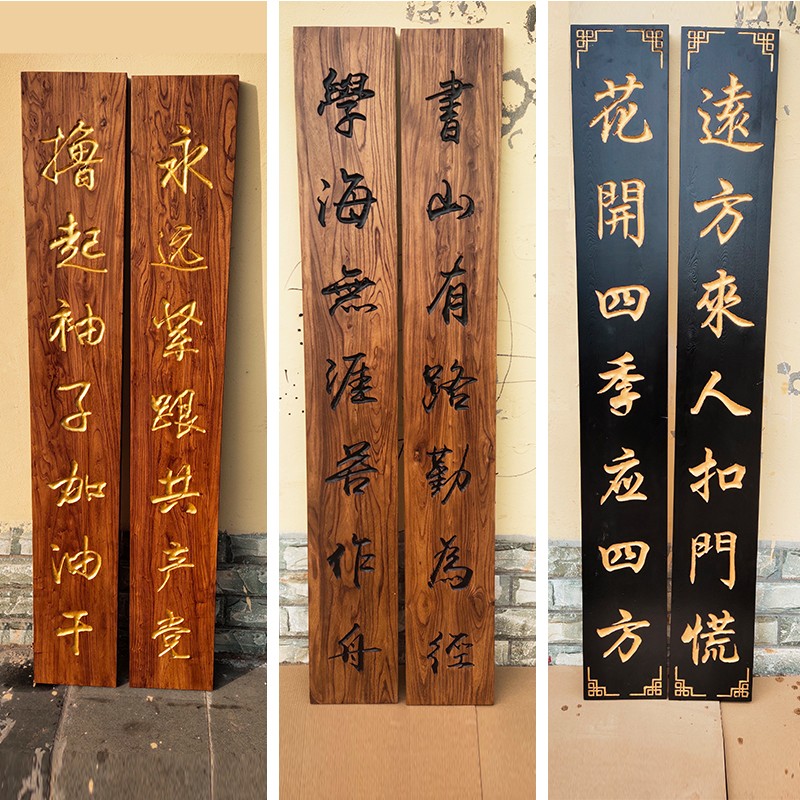 永远紧跟共产党
撸起袖子加油干
書山有路勤為徑
學海無涯苦作舟
遠方來人扣門慌
花開四季应四方